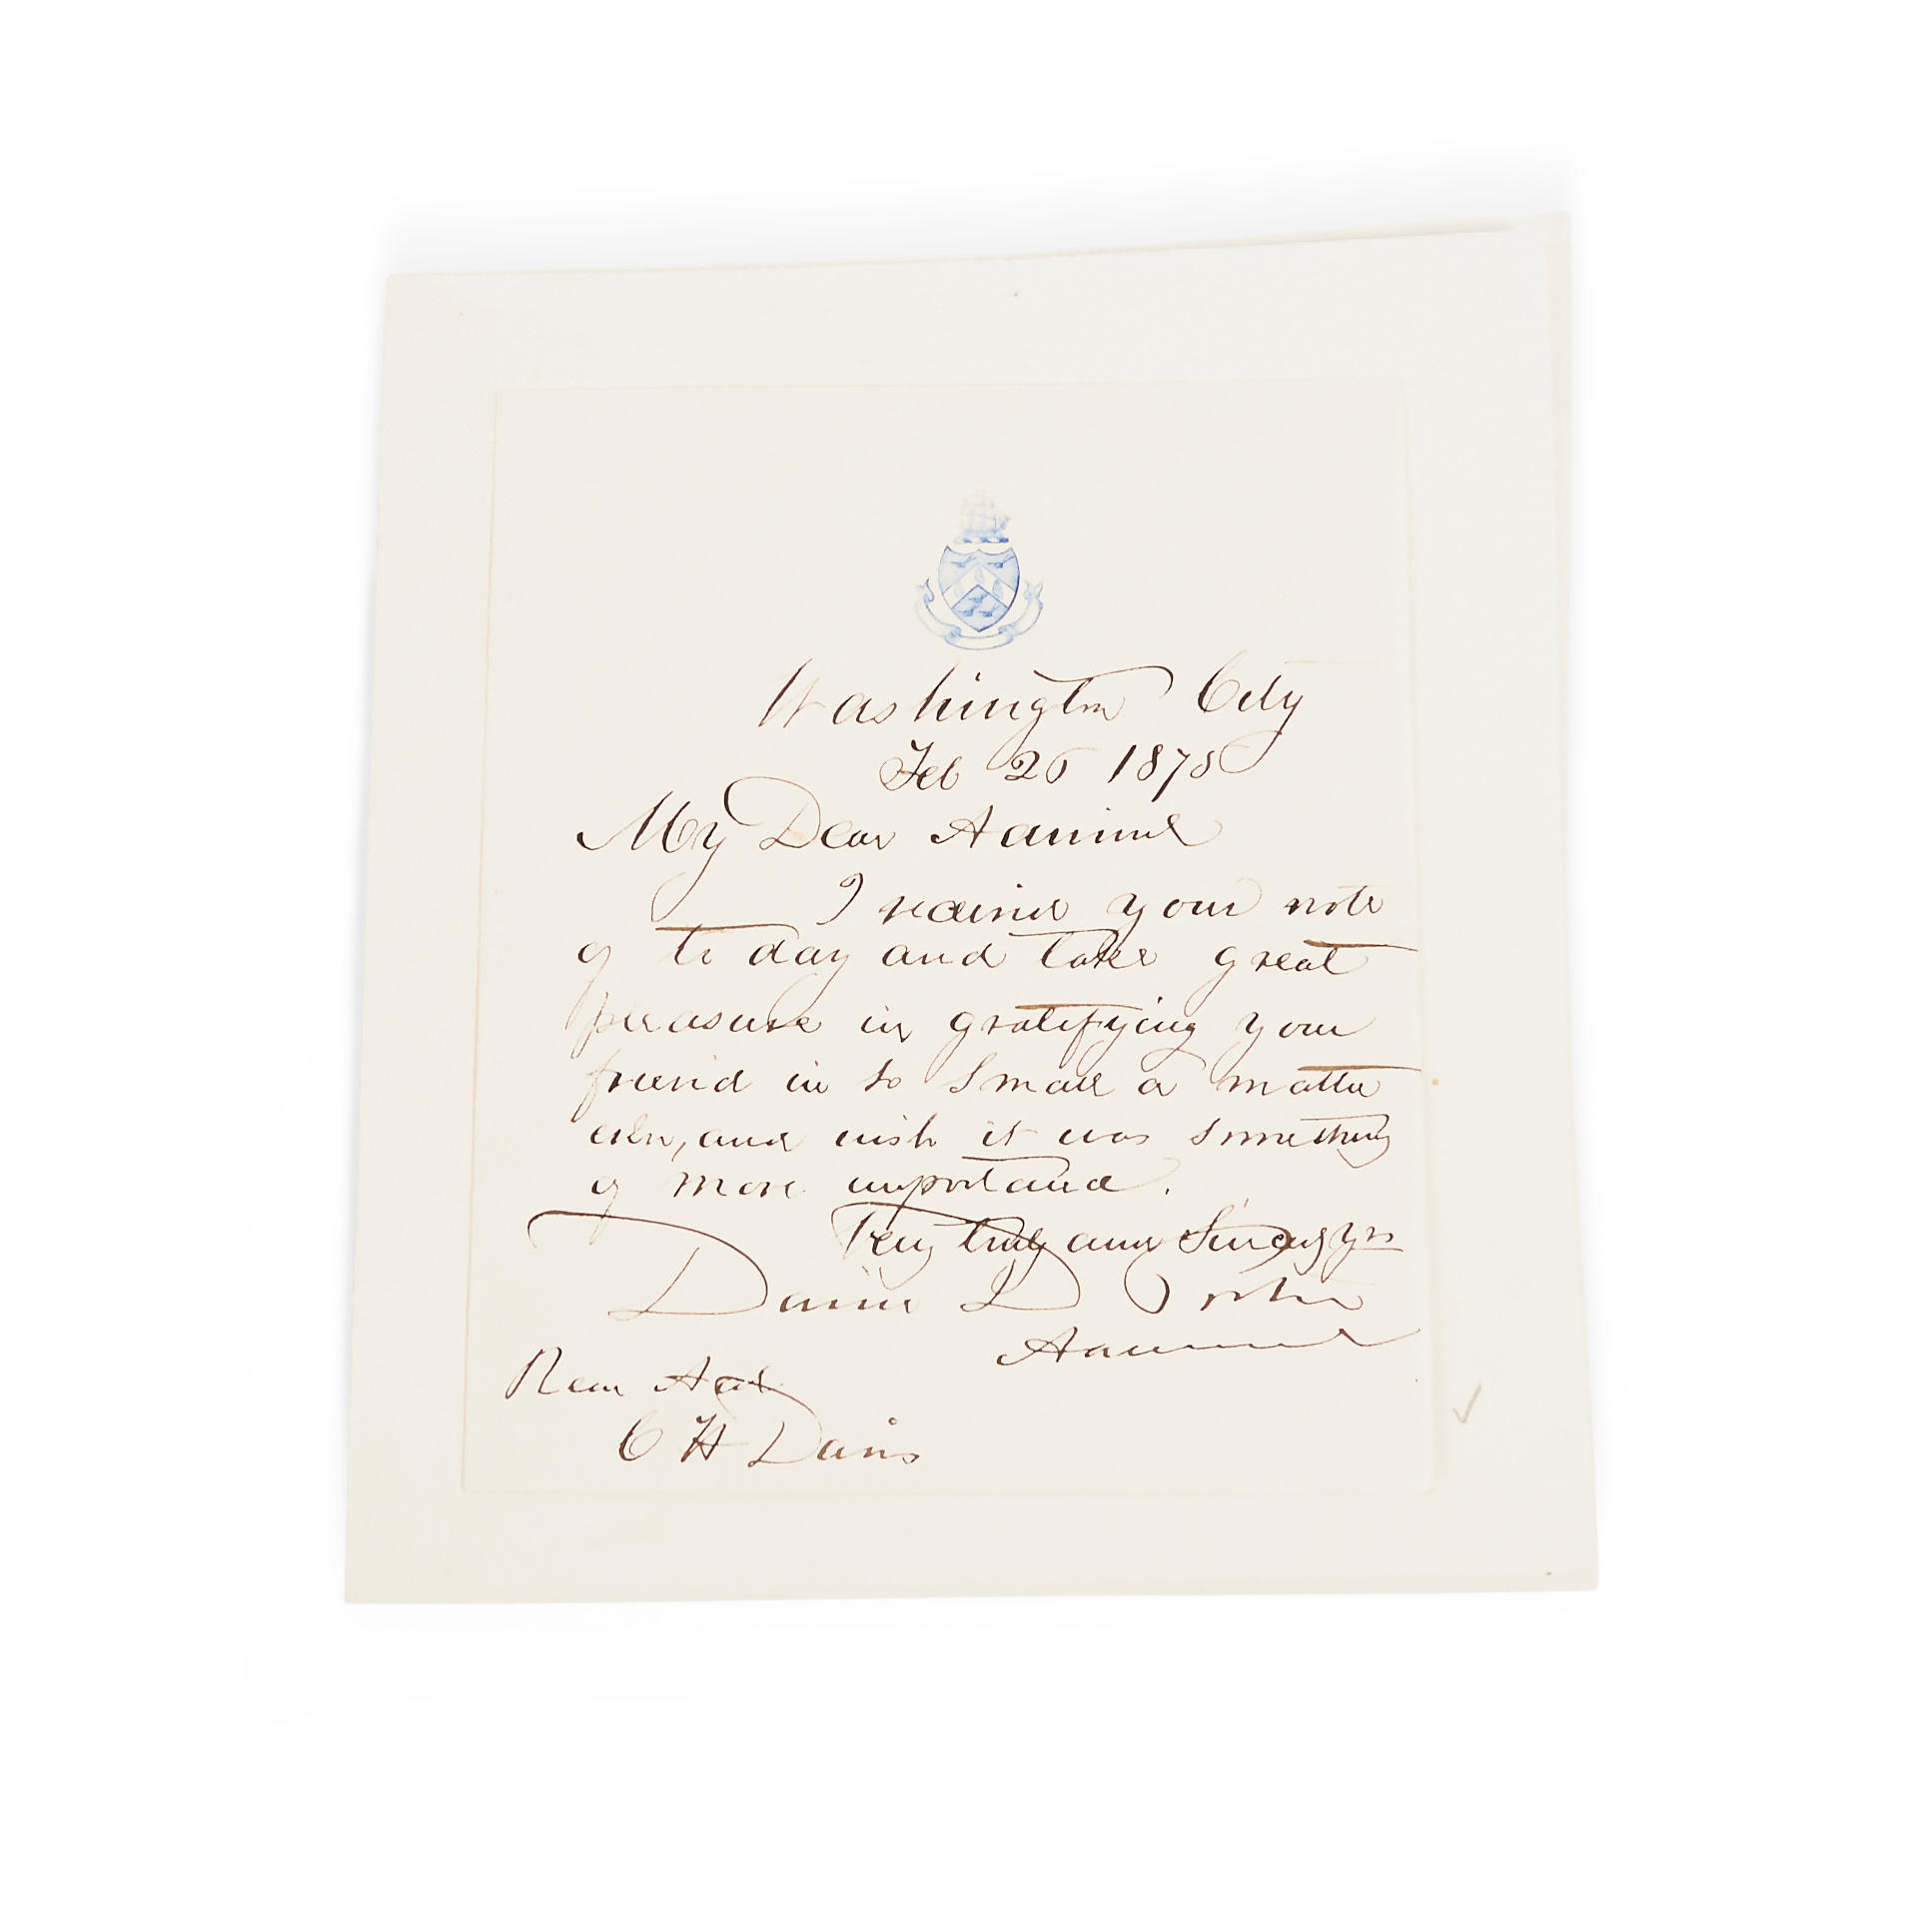 Washington City
Feb 26 1875
My Dear Admiral
I received your note
of to day and take great
pleasure in gratifying your
friend in so small a matter
and wish it was something
of more importance.
Very truly and Sincerely yrs
David D Porter
Admiral
Rear Adl
C H Davis